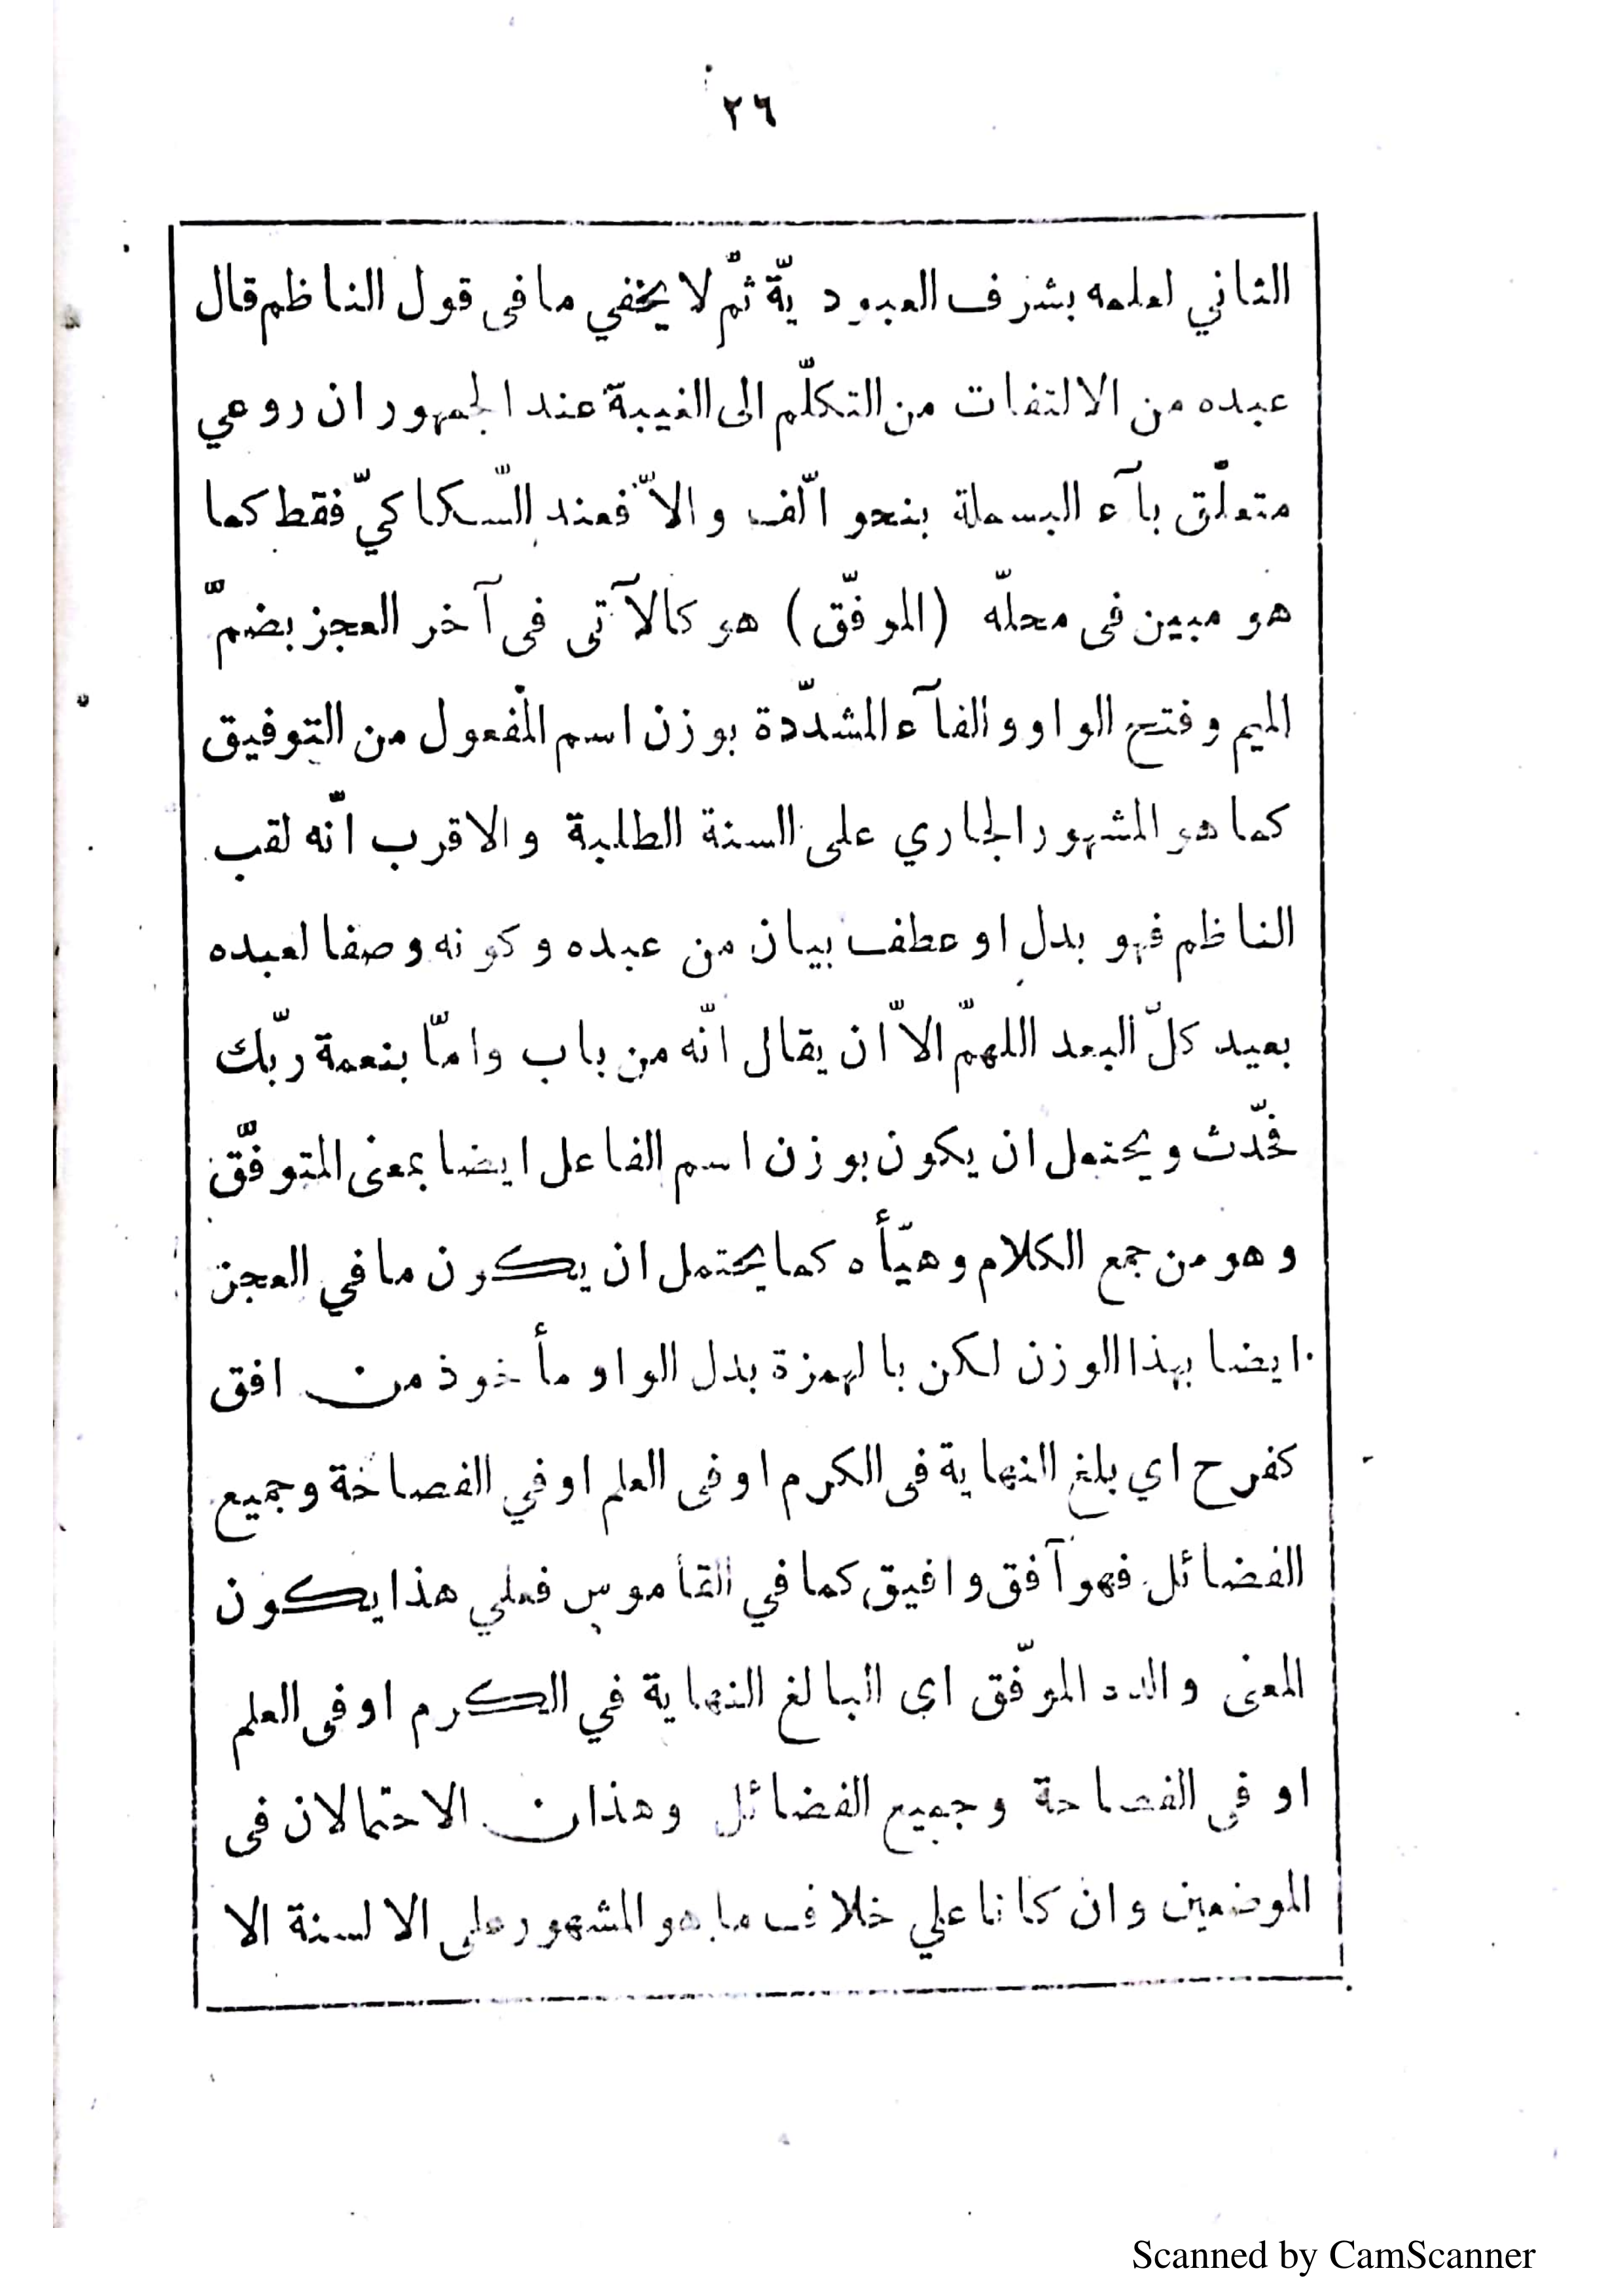 ٢٦
الثاني لعلمه بشرف العبودية ثمّ لا يخفي ما فى قول الناظم قال
عبده من الالتفات من التكلّم الى الغيبة عند الجمهور ان روعي
متعلّق بآء البسملة بنحو الّف والاّ فعند السّكاكيّ فقط كما
هو مبين فى محلّه (الموفّق) هو كالآتى فى آخر العجز بضمّ
الميم وفتح الواو والفآء المشدّدة بوزن اسم المفعول من التوفيق
كما هو المشهور الجاري على السنة الطلبة والاقرب انّه لقب
الناظم فهو بدل او عطف بيان من عبده وكونه وصفا لعبده
بعيد كلّ البعد اللهمّ الاّ ان يقال انّه من باب وامّا بنعمة ربّك
فحدّث ويحتمل ان يكون بوزن اسم الفاعل ايضا بمعنى المتوفّق
وهو من جمع الكلام وهيّأه كما يحتمل ان يكون ما في العجز
ايضا بهذا الوزن لكن بالهمزة بدل الواو مأخوذ من افق
كفرح اي بلغ النهاية فى الكرم او فى العلم او في الفصاخة وجميع
الفضائل فهو آفق وافيق كما في القاموس فعلي هذا يكون
المعنى والدد الموّفق اى البالغ النهاية في الكرم او فى العلم
او فى الفصاحة وجميع الفضائل وهذان الاحتمالان فى
الموضعين وان كانا علي خلاف ما هو المشهور على الالسنة الا
Scanned by CamScanner